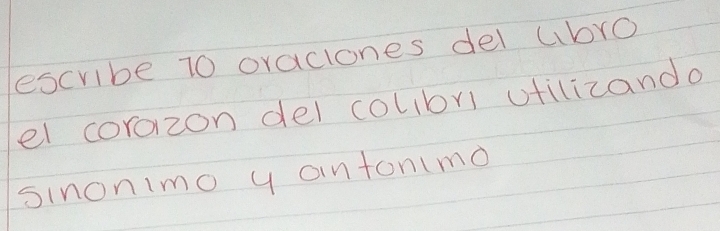 escribe 10 oraciones del libro
el corazon del colibri utilizando
sinonimo y antonimo